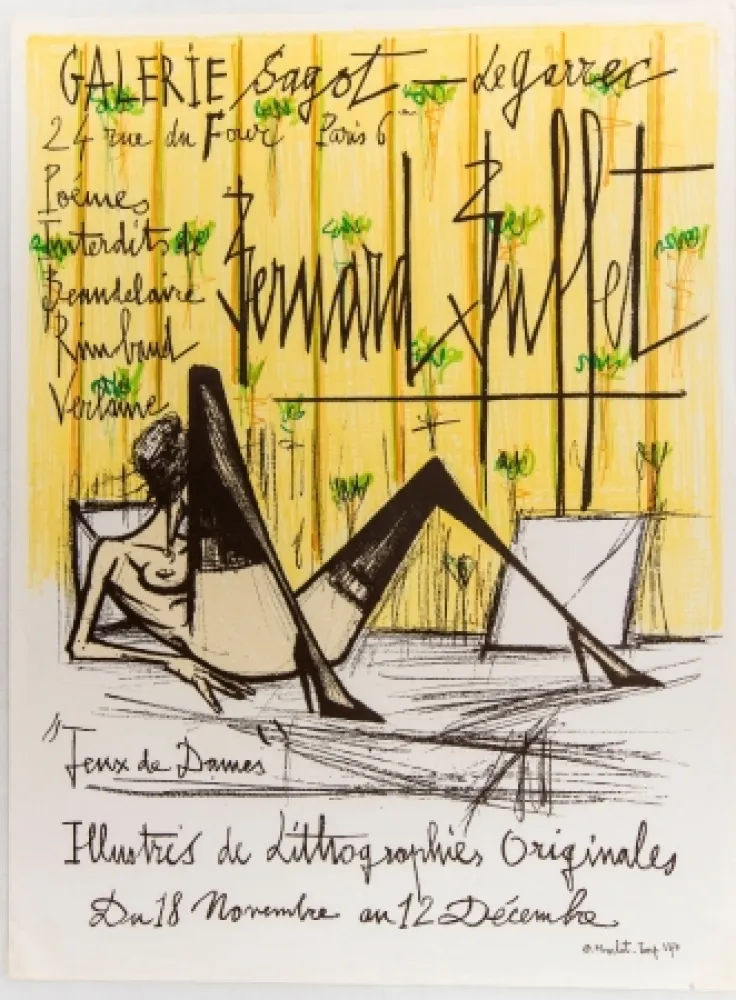 GALERIE Sagot - Le Garrec
24 rue du Four Paris 6
Poémes
Interdits de
Beaudelaire
Rimbaud
Verlaine
Bernard Buffet
"Jeux de Dames"
Illustrés de Lithographies Originales
Du 18 Novembre au 12 Décembre